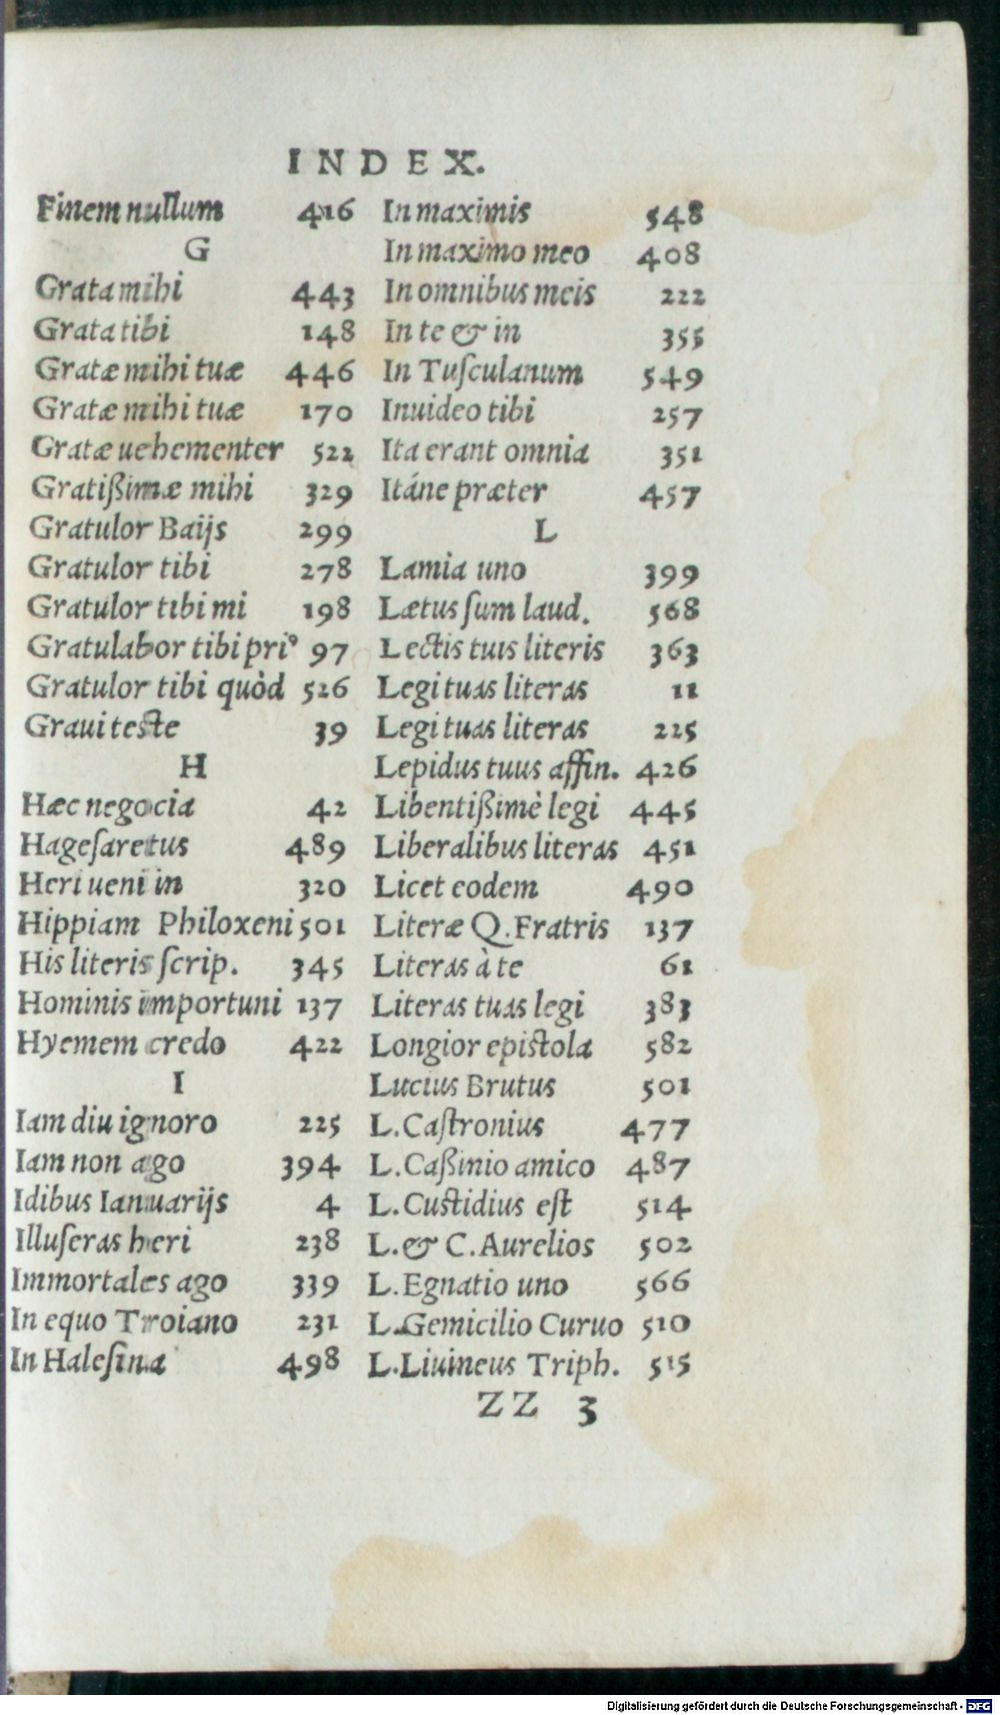 INDEX.
Finem nullum 416
G
Grata mihi 443
Grata tibi 148
Gratæ mihi tuæ 446
Gratæ mihi tuæ 170
Gratæ uehementer 522
Gratißimæ mihi 329
Gratulor Baijs 299
Gratulor tibi 278
Gratulor tibi mi 198
Gratulabor tibi pri⁹ 97
Gratulor tibi quòd 526
Graui teste 39
H
Hæc negocia 42
Hageſaretus 489
Heri ueni in 320
Hippiam Philoxeni 501
His literis ſcrip. 345
Hominis importuni 137
Hyemem credo 422
I
Iam diu ignoro 225
Iam non ago 394
Idibus Ianuarijs 4
Illuſeras heri 238
Immortales ago 339
In equo Troiano 231
In Haleſina 498
In maximis 548
In maximo meo 408
In omnibus meis 222
In te & in 355
In Tuſculanum 549
Inuideo tibi 257
Ita erant omnia 351
Itáne præter 457
L
Lamia uno 399
Lætus ſum laud. 568
Lectis tuis literis 363
Legi tuas literas 11
Legi tuas literas 225
Lepidus tuus affin. 426
Libentißimè legi 445
Liberalibus literas 451
Licet eodem 490
Literæ Q. Fratris 137
Literas à te 61
Literas tuas legi 383
Longior epistola 582
Lucius Brutus 501
L. Caſtronius 477
L. Caßinio amico 487
L. Custidius eſt 514
L. & C. Aurelios 502
L. Egnatio uno 566
L. Gemicilio Curuo 510
L. Liuineus Triph. 515
ZZ 3
Digitalisierung gefördert durch die Deutsche Forschungsgemeinschaft - DFG